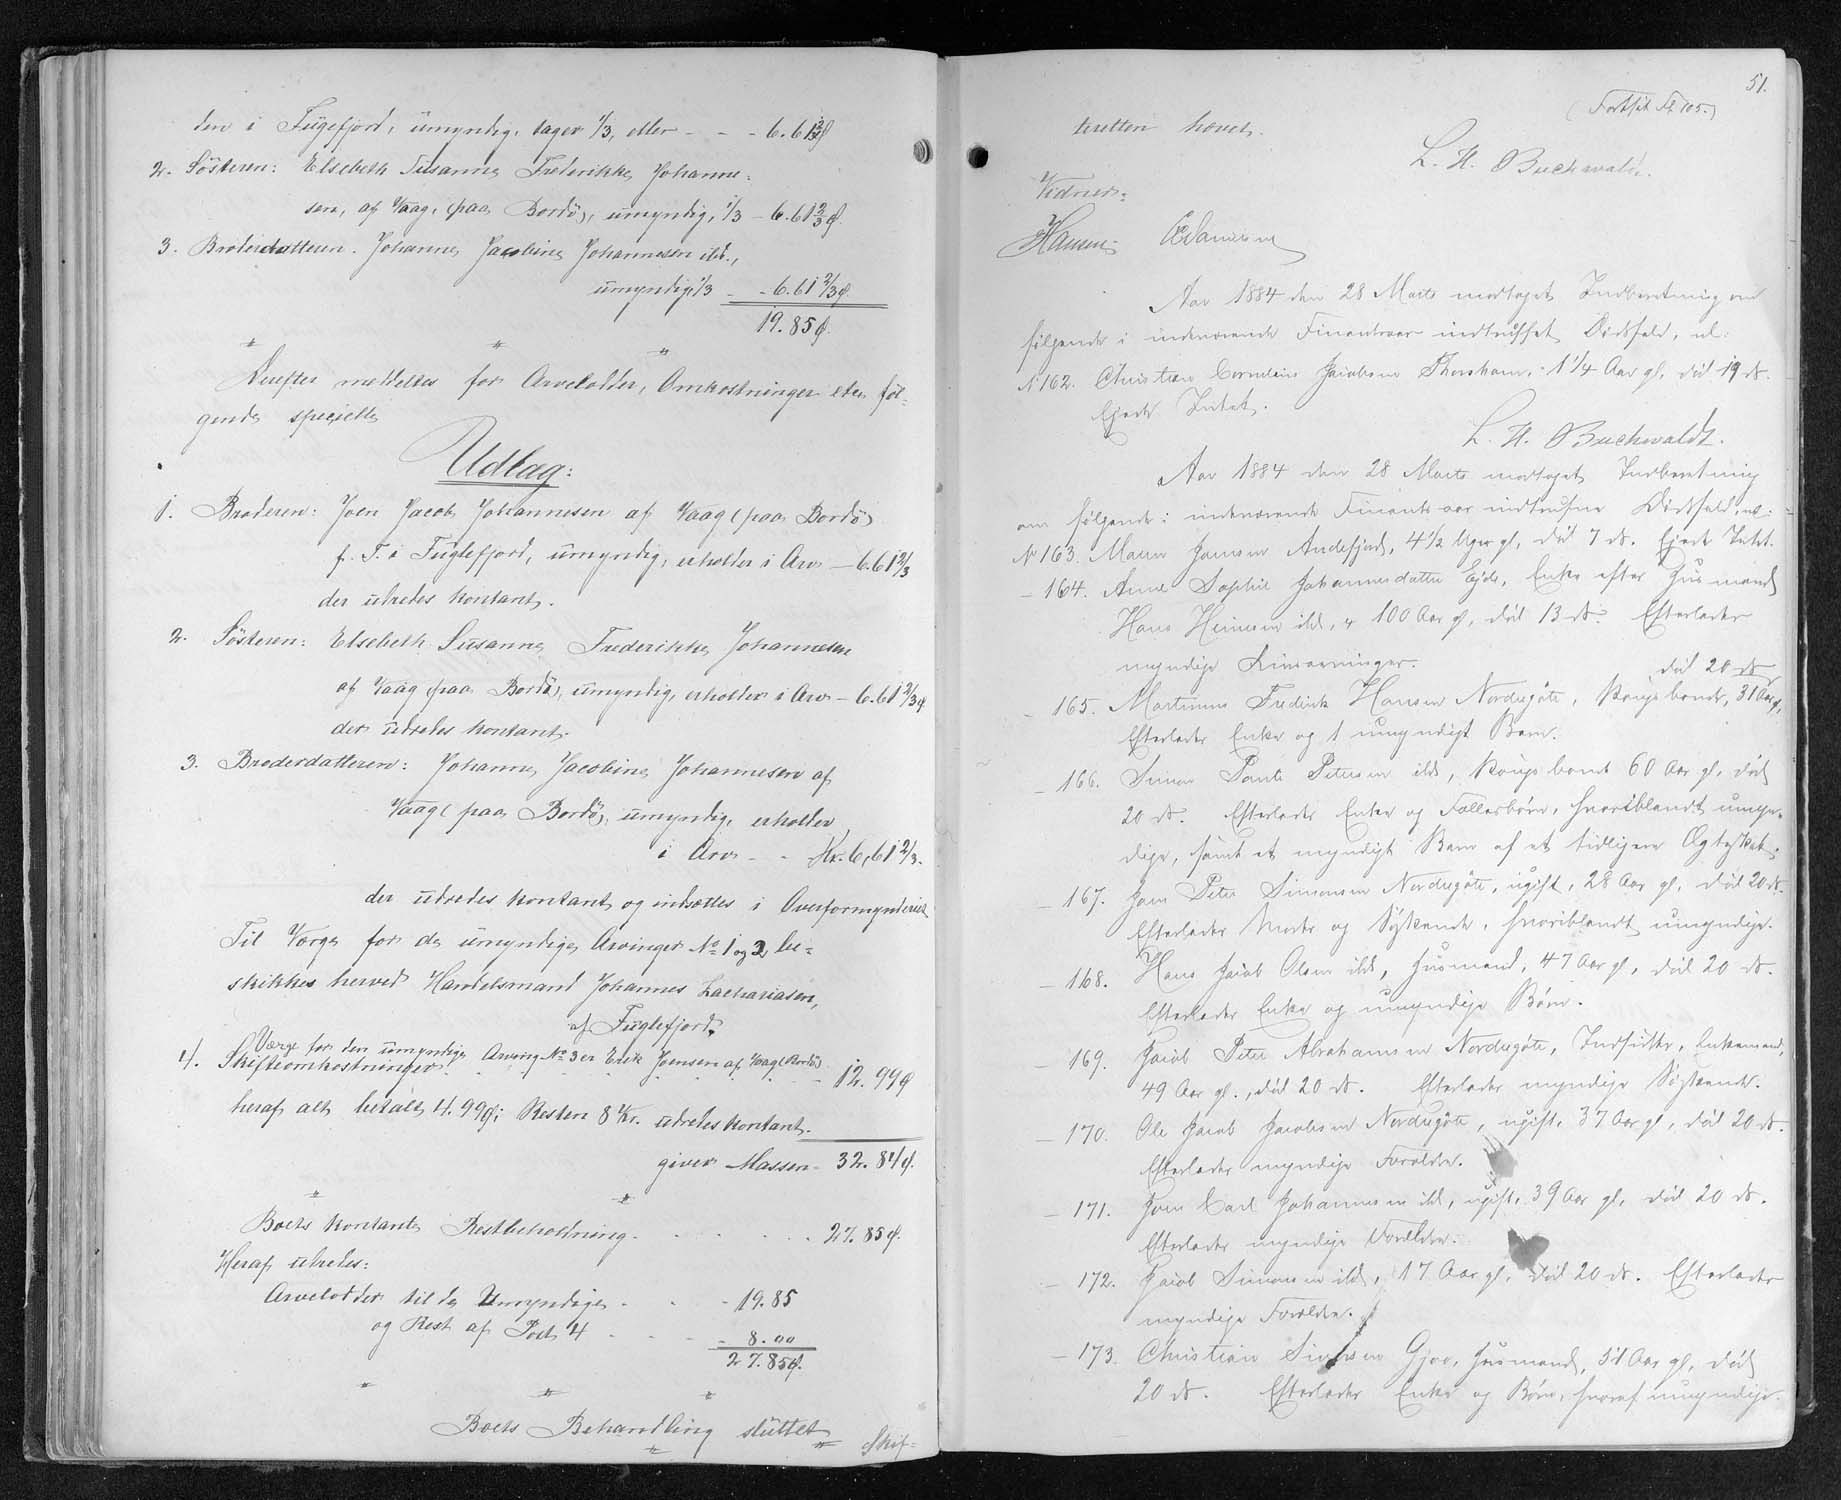 den i Fuglefjord, umyndig, tager 1/3, eller - - - 6.61 2/3 Ø
2. Søsteren: Elsebeth Susanne Frederikke Johanne=
sen, af Vaag, (paa Bordø), umyndig, 1/3 - 6.61 2/3 Ø.
3. Broderdatteren. Johanne Jacobine Johannesen ibd.,
umyndig, 1/3 - - 6.61 2/3 Ø.
19.85 Ø.
Derefter meddeltes for Arvelodder, Omkostninger etc. føl=
gende specielle
Udlag:
1. Broderen: Joen Jacob Johannesen af Vaag (paa Bordø)
p. T. i Fuglefjord, umyndig, erholder i Arv - 6.61 2/3
der udredes kontant.
2. Søsteren: Elsebeth Susanne Frederikke Johannesen
af Vaag (paa Bordø), umyndig, erholder i Arv - 6.61 2/3 Ø
der udredes kontant.
3. Broderdatteren: Johanne Jacobine Johannesen af
Vaag (paa Bordø), umyndig, erholder
i Arv - - Kr. 6,61 2/3.
der udredes kontant og indsættes i Overformynderiet
Til Værge for de umyndige Arvinger No 1 og 2 be=
skikkes herved Handelsmand Johannes Zachariasen,
af Fuglefjord.
Værge for den umyndige Arving No 3 er Erik Joensen af Vaag (Bordø)
4. Skifteomkostninger - 12.99 Ø
heraf alt betalt 4.99 Ø; Resten 8 Kr. udredes kontant.
giver Massen - 32.84 Ø.
Boets kontante Restbeholdning . . . . . 27.85 Ø.
Heraf udredes:
Arvelodder til de Umyndige . . - 19.85
og Rest af Post 4 . . - - 8.00
27.85 Ø.
Boets Behandling sluttet
Skif=
51.
(Fortsat Fol. 105.)
teretten hævet.
L. H. Buchwaldt.
Vidner:
Hansen
Aar 1884 den 28 Marts modtaget Indberetning om
følgende i indeværende Finantsaar indtruffet Dødsfald, nl:
No 162. Christian Cornelius Jacobsen Thorshavn, 1 1/4 Aar gl, død 19 ds.
Ejede Intet.
L. H. Buchwaldt.
Aar 1884 den 28 Marts modtaget Indberetning
om følgende i indeværende Finantsaar indtrufne Dødsfald, nl:
No 163. Maren Jensen Andefjord, 4 1/2 Uger gl, død 7 ds. Ejede Intet.
- 164. Anne Sophie Johannesdatter Ejde, Enke efter Husmand
Hans Heinesen ibd, 100 Aar gl, død 13 ds. Efterlader
myndige Livsarvinger.
død 20 ds
- 165. Martinus Frederik Hansen Nordregøte, Kongsbonde, 31 Aar gl,
Efterlader Enke og 1 umyndigt Barn.
- 166. Simon Poul Petersen ibd, Kongsbonde 60 Aar gl, død
20 ds. Efterlader Enke og Fællesbørn, hvoriblandt umyn=
dige, samt et myndigt Barn af et tidligere Ægteskab.
- 167. Joen Peter Simonsen Nordregøte, ugift, 28 Aar gl, død 20 ds.
Efterlader Moder og Søskende, hvoriblandt umyndige.
- 168. Hans Jacob Olsen ibd, Husmand, 47 Aar gl, død 20 ds.
Efterlader Enke og umyndige Børn.
- 169. Jacob Peter Abrahamsen Nordregøte, Indsidder, Enkemand,
49 Aar gl., død 20 ds. Efterlader myndige Søskende.
- 170. Ole Jacob Jacobsen Nordregøte, ugift, 37 Aar gl, død 20 ds.
Efterlader myndige Forældre.
- 171. Joen Carl Johannesen ibd, ugift, 39 Aar gl, død 20 ds.
Efterlader myndige Forældre.
- 172. Jacob Simonsen ibd, 17 Aar gl, død 20 ds. Efterlader
myndige Forældre.
- 173. Christian Gjov, Husmand, 51 Aar gl, død
20 ds. Efterlader Enke og Børn, hvoraf umyndige.